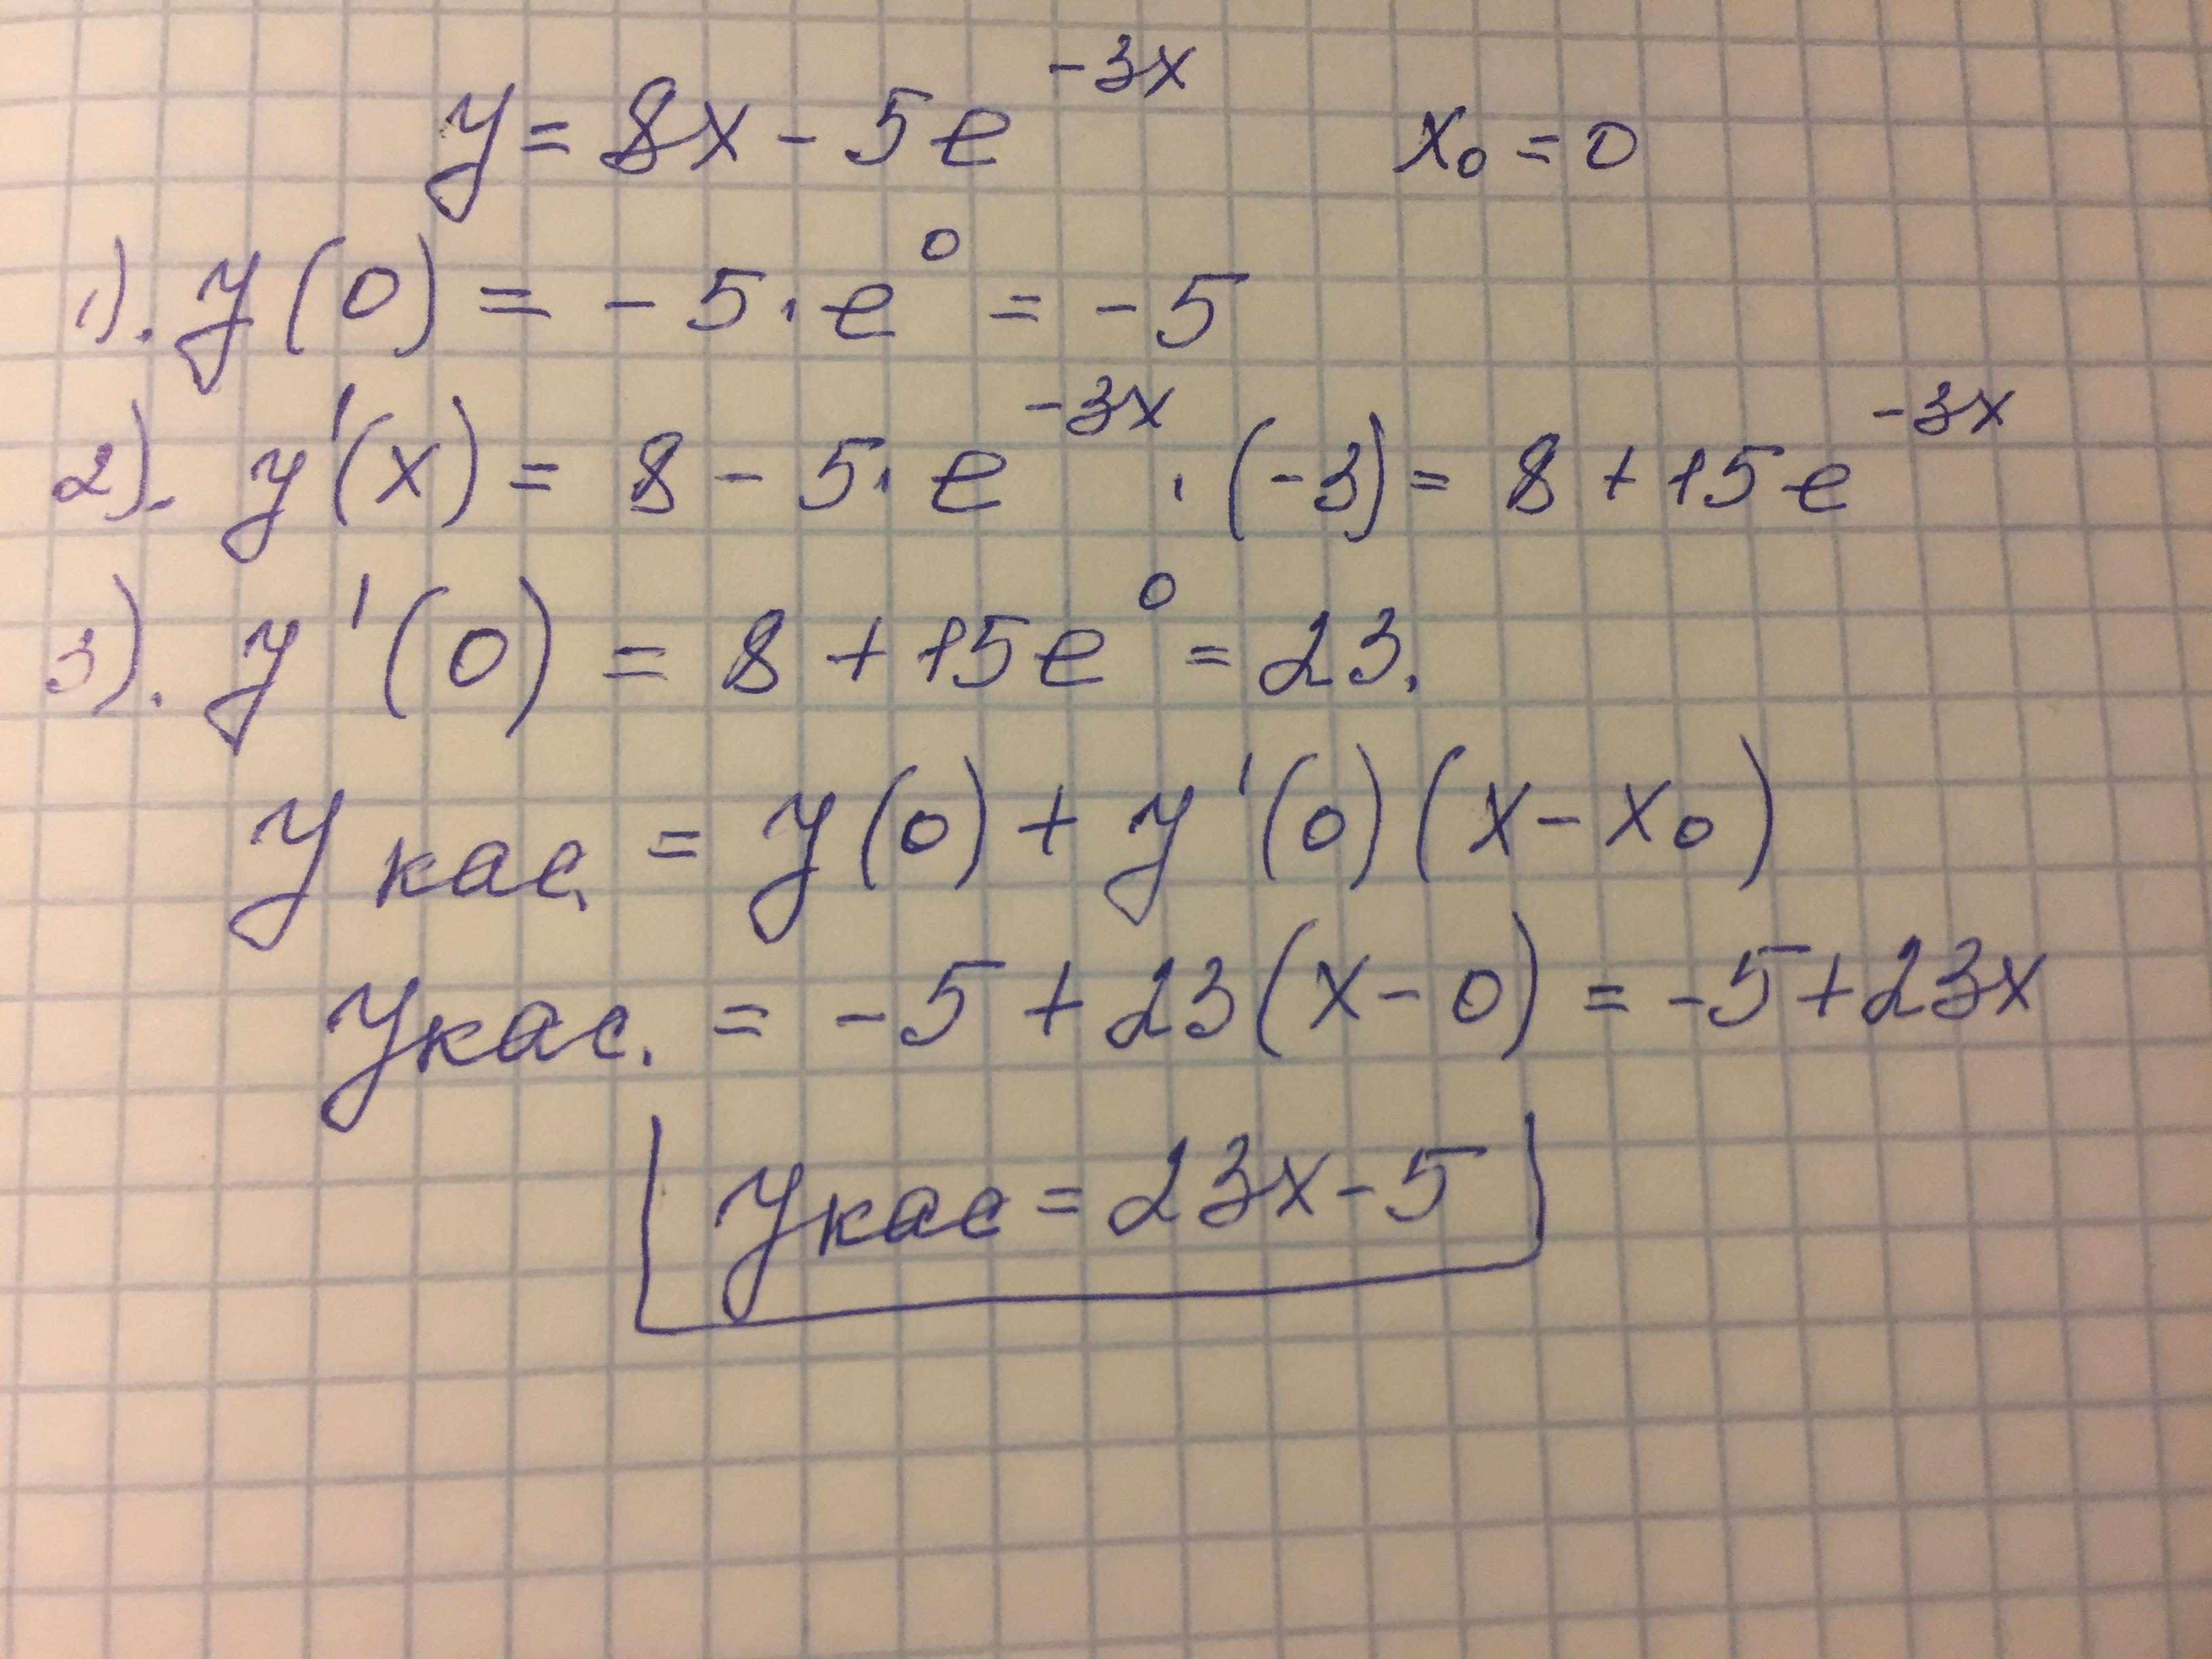 y = 8x - 5e^{-3x}  x₀ = 0
1). y(0) = -5·e⁰ = -5
2). y'(x) = 8 - 5·e^{-3x}·(-3) = 8 + 15e^{-3x}
3). y'(0) = 8 + 15e⁰ = 23.
y кас. = y(0) + y'(0)(x - x₀)
y кас. = -5 + 23(x - 0) = -5 + 23x
y кас = 23x - 5